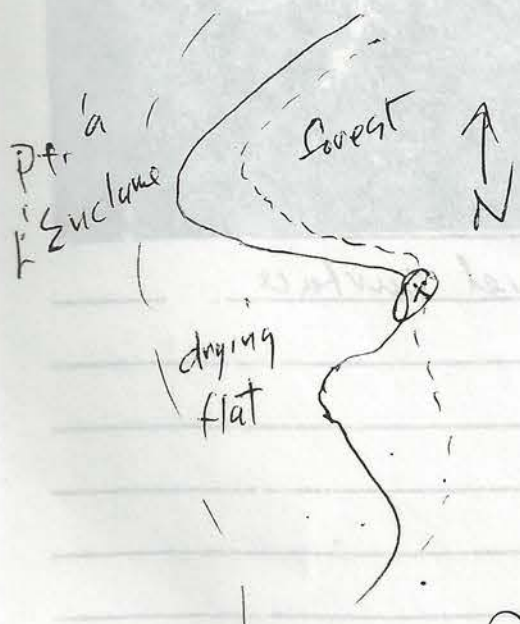 Pte. à
l'Enclume
forest
N
drying
flat
X